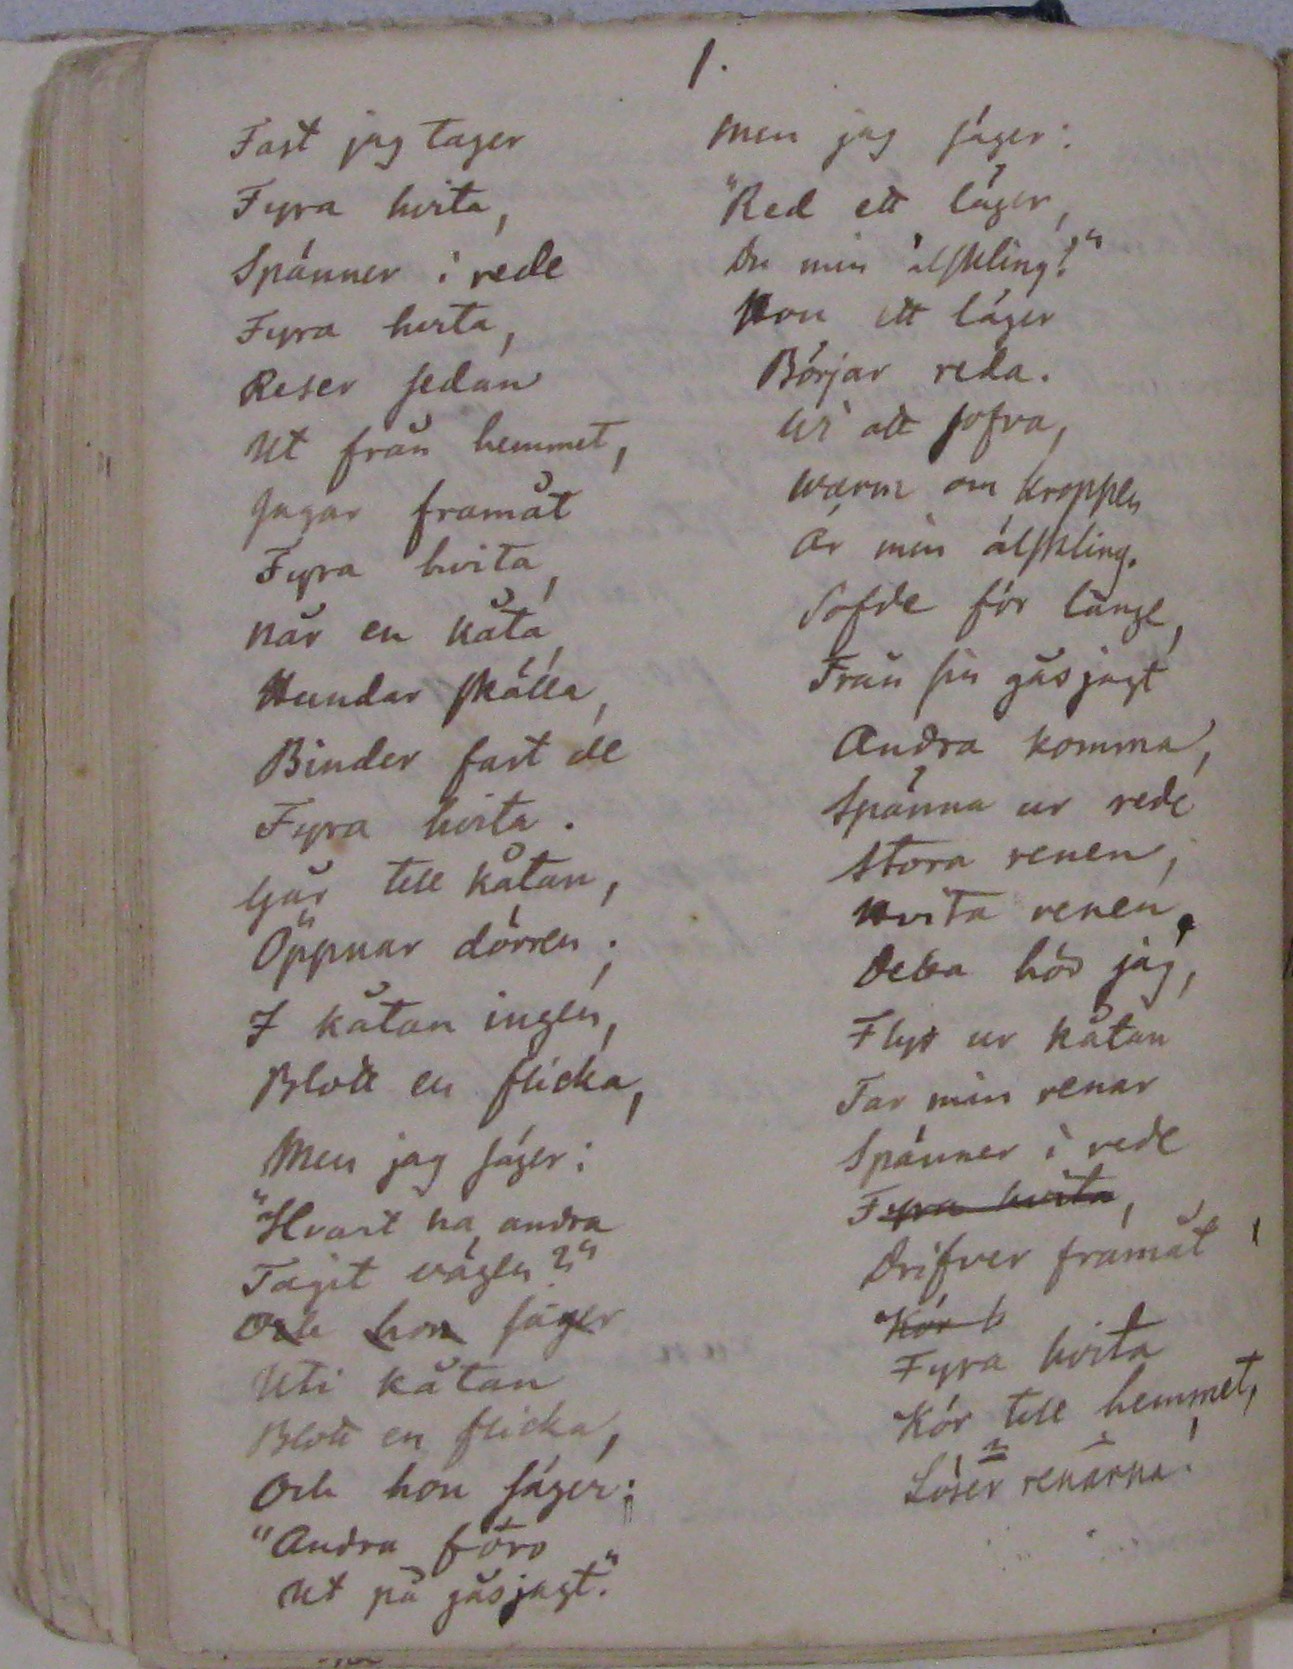 1.
Fast jag tager
Fyra hvita,
Spänner i rede
Fyra hvita,
Reser sedan
Ut från hemmet,
Jagar framåt
Fyra hvita,
När en kåta,
Hundar skälla,
Binder fast de
Fyra hvita.
Går till kåtan,
Öppnar dörren;
I kåtan ingen,
Blott en flicka,
Men jag säger:
"Hvart ha andra
Tagit vägen?"
Och hon säger
Uti kåtan
Blott en flicka,
Och hon säger:
"Andra foro
Ut på gåsjagt."
Men jag säger:
"Red ett läger,
Du min älskling!"
Hon ett läger
Börjar reda.
Wi att sofva,
Warm om kroppen
Är min älskling.
Sofde för länge,
Från sin gåsjagt
Andra komma,
Spänna ur rede
Stora renen,
Hvita renen.
Detta hör jag,
Flyr ur kåtan
Tar min renar
Spänner i rede
Fyra hvita,
Drifver framåt
Kör h
Fyra hvita
Kör till hemmet,
Löser renarna.